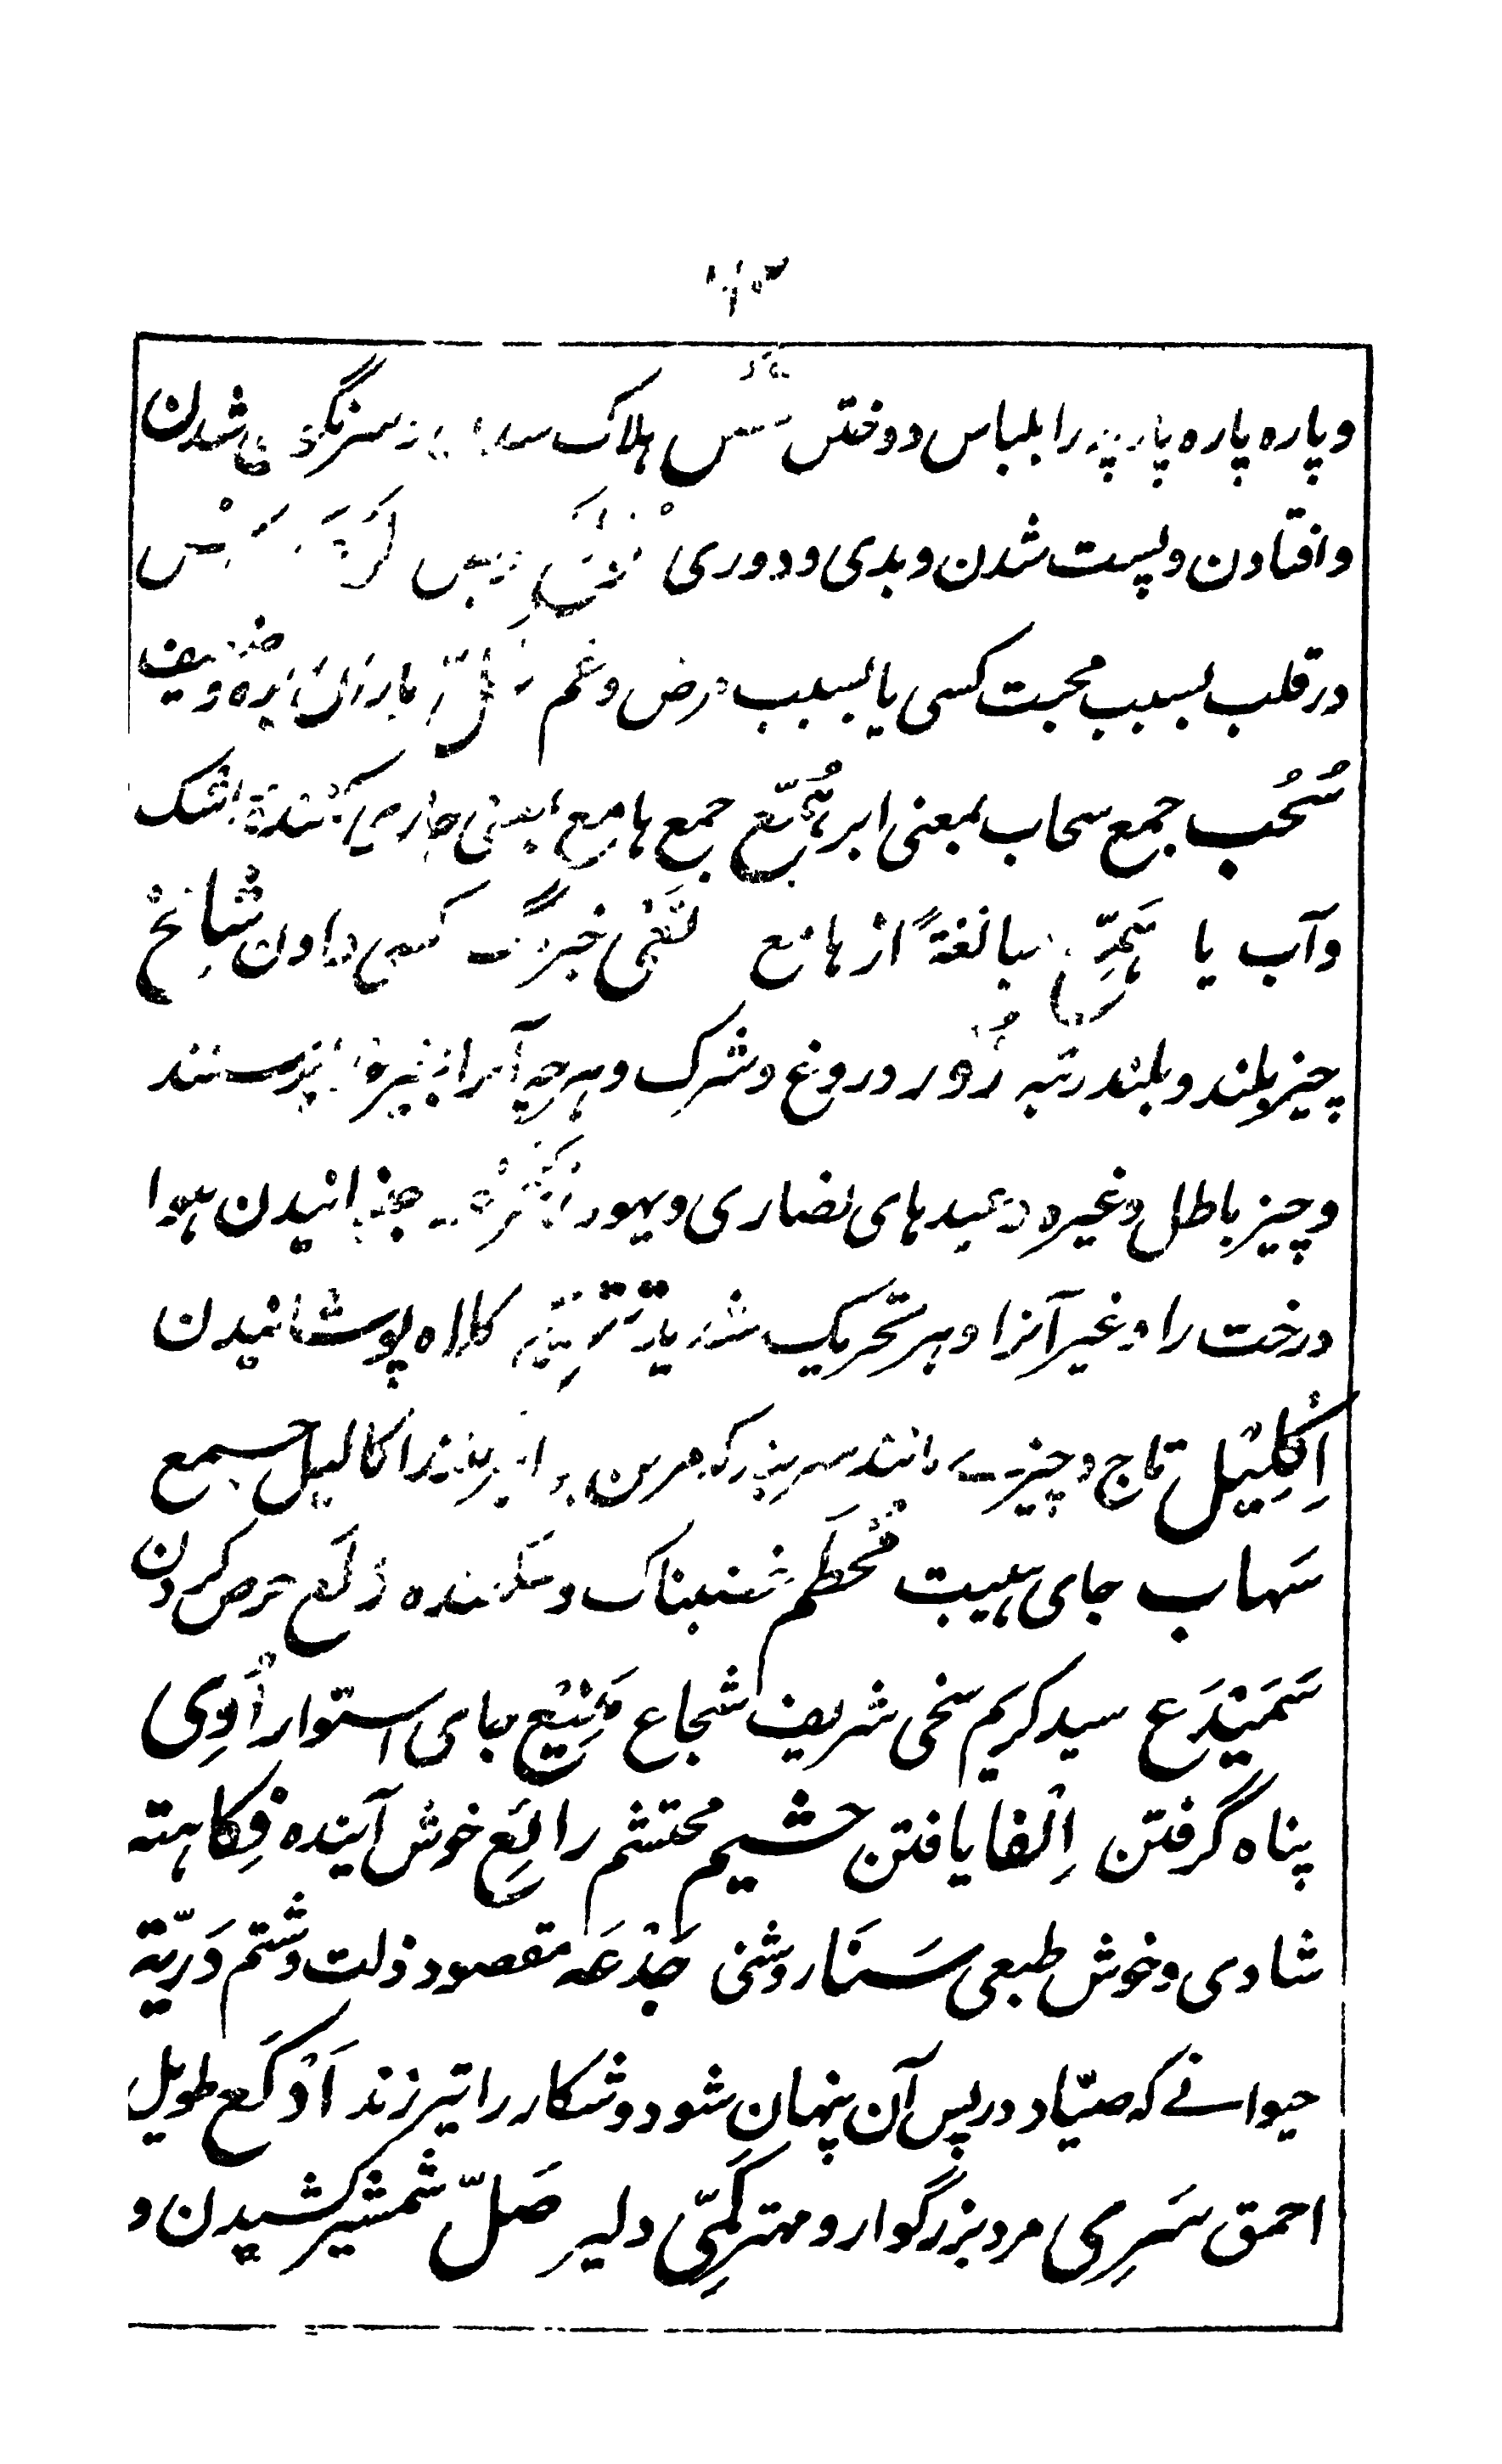 و پاره پاره پارچه را بلباس دوختن هلاک شدن
وافتادن و پست شدن و بدی و دوری
در قلب بسبب محبت کسی یا بسبب مرض و غم
سُحُب جمع سحاب بمعنی ابر هُمَّع جمع هامع بمعنی جاری کنندۀ اشک
و آب یا هَمِّع مبالغةً از هامع نَعْی خبر مرگ کسی دادن شامِخْ
چیز بلند و بلند رتبه زُوْر دروغ و شرک و هرچه آنرا بغیر خدا پرستند
و چیز باطل وغیره و عیدهای نصاری و یهود جنبانیدن هوا
درخت را و غیر آنرا و هر تحریک شدید کلاه پوشانیدن
اِکْلِیْل تاج و چیزے مانند سربند که اکالیل جمع
سَهاب جای هیبت مُحْطَم غضبناک و شکننده زَلَع حرص کردن
سَمَیْدَع سید کریم سخی شریف شجاع مَنِیْع جای استوار اُوِی
پناه گرفتن اِلْفا یافتن حشیم محتشم رائِع خوش آینده فِکاهته
شادی و خوش طبعی سَنَا روشنی جَدْعَه مقصود ذلت و شتم دَرِیّة
حیوانے که صیّاد در پس آن پنهان شود و شکار را تیر زند اَدْلَع طویل
احمق سَرِی مرد بزرگوار و مهتر کَمِیّ دلیر صَلّ شمشیر کشیدن و